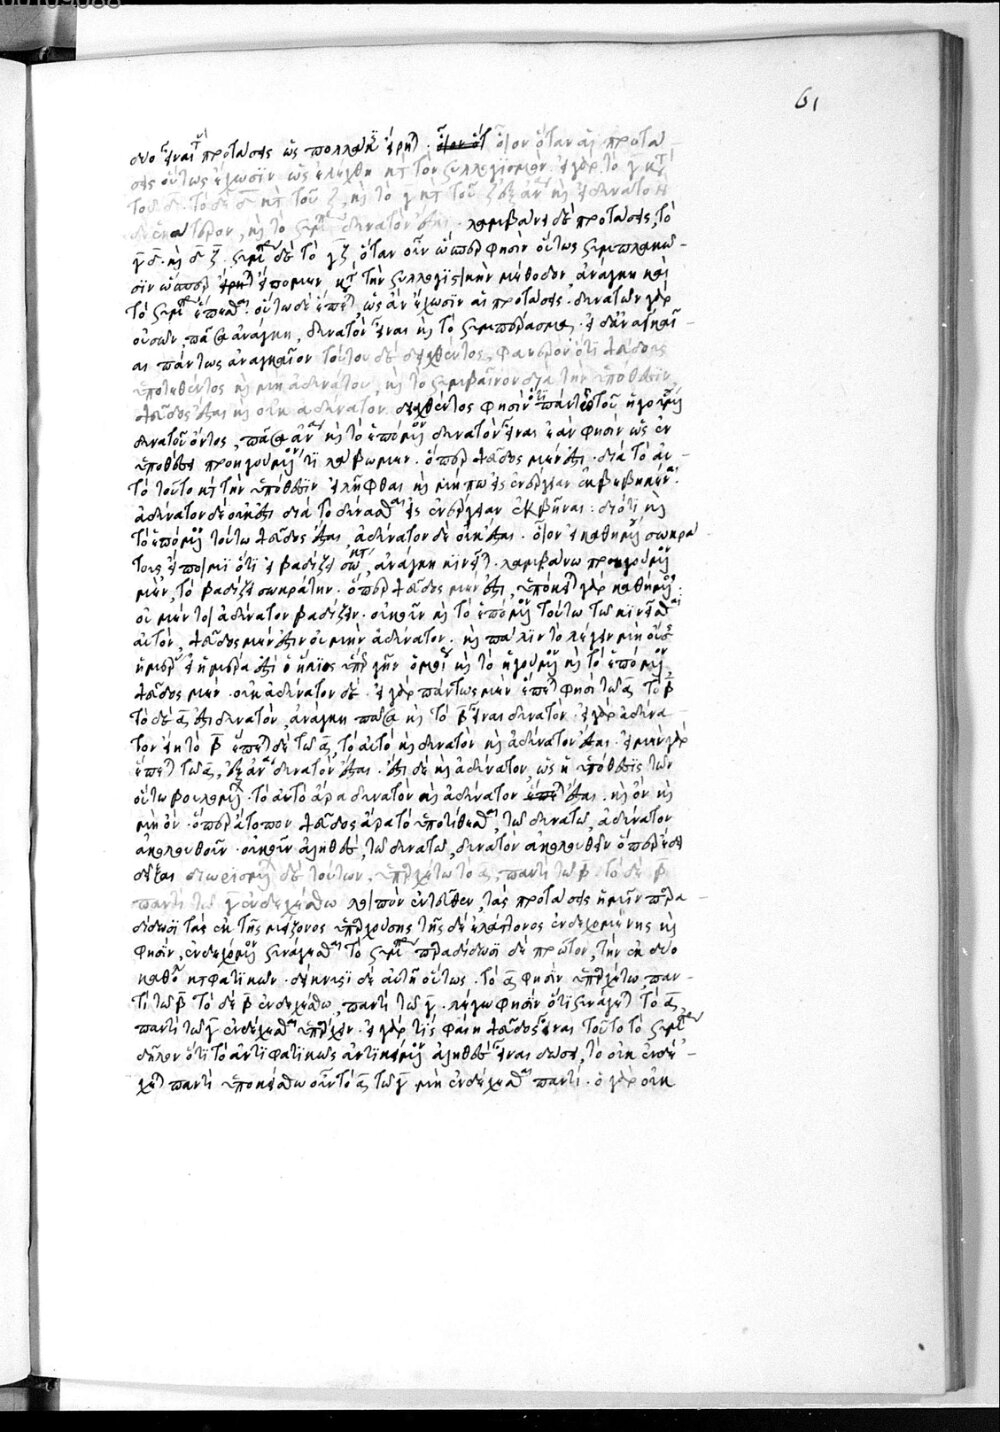 61
δύο εἶναι τὰς προτάσεις ὡς πολλάκις εἴρηται. οἷον ὅταν αἱ προτά
σεις οὕτως ἔχωσιν ὡς ἐλέχθη κατὰ τὸν συλλογισμὸν. εἰ γὰρ τὸ γ κατὰ
τοῦ δ. τὸ δὲ δ κατὰ τοῦ ζ, καὶ τὸ γ κατὰ τοῦ ζ ἐξ ἀνάγκης καὶ εἰ δυνατὸν
δὲ ἑκάτερον, καὶ τὸ συμπέρασμα δυνατὸν ἔσται. λαμβάνει δὲ προτάσεις, τὸ
γδ. καὶ δζ. συμπέρασμα δὲ τὸ γζ, ὅταν οὖν ὥσπερ φησὶν οὕτως
σιν ὥσπερ εἴπομεν, κατὰ τὴν συλλογιστικὴν μέθοδον, ἀνάγκη καὶ
τὸ συμπέρασμα ἕπεσθαι. οὕτω δὲ ἕπεται, ὡς ἂν ἔχωσιν αἱ προτάσεις. δυνατῶν γὰρ
οὐσῶν, πᾶσα ἀνάγκη, δυνατὸν εἶναι καὶ τὸ συμπέρασμα. εἰ δ' ἀναγκαῖ
αι πάντως ἀναγκαῖον τούτου δὲ δειχθέντος, φανερὸν ὅτι ψεύδους
ὑποτεθέντος καὶ μὴ ἀδυνάτου, καὶ τὸ συμβαῖνον διὰ τὴν ὑπόθεσιν
ψεῦδος ἔσται καὶ οὐκ ἀδύνατον. δειχθέντος φησὶν ὅτι παντὸς τοῦ ἡγουμένου
δυνατοῦ ὄντος, πᾶσα ἀνάγκη καὶ τὸ ἑπόμενον δυνατὸν εἶναι ἐάν φησιν ὡς ἐν
ὑποθέσει προηγούμενόν τι λάβωμεν. ὅπερ ψεῦδος μέν ἐστι. διὰ τὸ αὐ
τὸ τοῦτο κατὰ τὴν ὑπόθεσιν εἰλῆφθαι καὶ μή πω εἰς ἐνέργειαν ἐκβεβηκέναι.
ἀδύνατον δὲ οὐκ ἔστι διὰ τὸ δύνασθαι εἰς ἐνέργειαν ἐκβῆναι: διότι καὶ
τὸ ἑπόμενον τούτω ψεῦδος ἔσται, ἀδύνατον δὲ οὐκ ἔσται. οἷον εἰ καθημένου σωκρά
τους εἴποιμι ὅτι εἰ βαδίζει σωκράτης, ἀνάγκη κινεῖται. λαμβάνω προηγούμενον
μὲν, τὸ βαδίζει σωκράτην. ὅπερ ψεῦδος μέν ἐστι, ὑπόκειται γὰρ καθήμενος.
οὐ μέντοι ἀδύνατον βαδίζειν. οὐκοῦν καὶ τὸ ἑπόμενον τούτω τὸ κινεῖσθαι
αὐτὸν, ψεῦδος μέν ἐστιν οὐ μὴν ἀδύνατον. καὶ πάλιν τὸ λέγειν μὴ οὔσης
ἡμέρας εἰ ἡμέρα ἐστὶ ὁ ἥλιος ὑπὲρ γῆν ὁμοίως καὶ τὸ ἡγούμενον καὶ τὸ ἑπόμενον
ψεῦδος μὲν. οὐκ ἀδύνατον δὲ. εἰ γὰρ πάντως μὲν ἕπεται φησὶ τῶ α, τὸ β
τὸ δὲ α ἐστι δυνατὸν, ἀνάγκη πᾶσα καὶ τὸ β εἶναι δυνατόν. εἰ γὰρ ἀδύνα
τον εἴη τὸ β ἕπεται δὲ τῶ α, τὸ αὐτὸ καὶ δυνατὸν καὶ ἀδύνατον ἔσται. εἰ μὲν γὰρ
ἕπεται τῶ α, ἐξ ἀνάγκης δυνατὸν ἔσται. ἔστι δὲ καὶ ἀδύνατον ὡς ἡ ὑπόθεσις τῶν
οὕτω βουλομένων. τὸ αὐτὸ ἄρα δυνατὸν καὶ ἀδύνατον ἔσται. καὶ ὂν καὶ
μὴ ὄν. ὅπερ ἄτοπον ψεῦδος ἄρα τὸ ὑποτίθεσθαι, τῶ δυνατῶ, ἀδύνατον
ἀκολουθεῖν. οὐκοῦν ἀληθὲς, τῶ δυνατῶ, δυνατὸν ἀκολουθεῖν ὅπερ ἔδει
δεῖξαι διωρισμένων δὲ τούτων, ὑπαρχέτω τὸ α, παντὶ τῶ β τὸ δὲ β
παντὶ τῶ γ ἐνδεχέσθω λοιπὸν ἐντεῦθεν, τὰς προτάσεις ἡμῖν παρα
δίδωσι τὰς ἐκ τῆς μείζονος ὑπαρχούσης τῆς δὲ ἐλάττονος ἐνδεχομένης καὶ
φησὶν, ἐνδεχόμενον συνάγεσθαι τὸ συμπέρασμα παραδίδωσι δὲ πρῶτον, τὴν ἐκ δύο
καθόλου καταφατικῶν. δείκνυσι δὲ αὐτὴ οὕτως. τὸ α φησὶν ὑπαρχέτω, παν
τὶ τῶ β τὸ δὲ β ἐνδεχέσθω, παντὶ τῶ γ. λέγω φησὶν ὅτι συνάγεται τὸ α
παντὶ τῶ γ ἐνδέχεσθαι ὑπάρχειν. εἰ γάρ τις φαίη ψεῦδος εἶναι τοῦτο τὸ συμπέρασμα
δῆλον ὅτι τὸ ἀντιφατικῶς ἀντικείμενον ἀληθὲς εἶναι δώσει, τὸ οὐκ ἐνδέ
χεται παντὶ ὑποκείσθω οὖν τὸ α τῶ γ μὴ ἐνδέχεσθαι παντί. ὁ γὰρ οὐκ